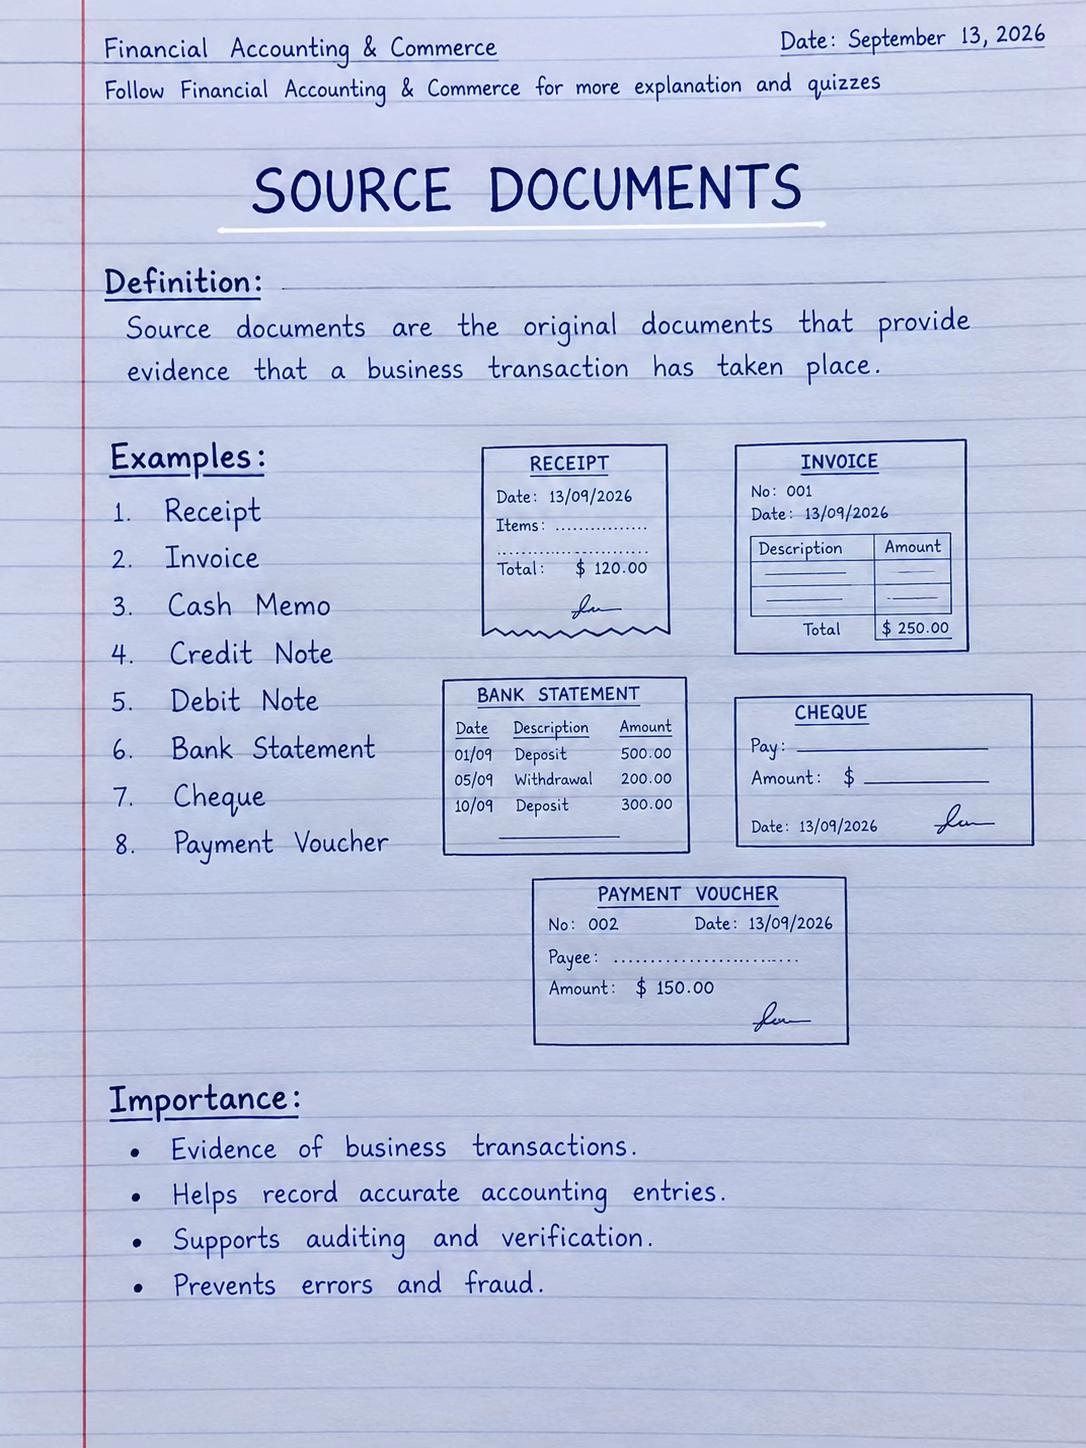 Financial Accounting & Commerce
Date: September 13, 2026
Follow Financial Accounting & Commerce for more explanation and quizzes
SOURCE DOCUMENTS
Definition:
Source documents are the original documents that provide
evidence that a business transaction has taken place.
Examples:
1. Receipt
2. Invoice
3. Cash Memo
4. Credit Note
5. Debit Note
6. Bank Statement
7. Cheque
8. Payment Voucher
RECEIPT
Date: 13/09/2026
Items: ................
..........................
Total: $ 120.00
INVOICE
No: 001
Date: 13/09/2026
Description Amount
Total $ 250.00
BANK STATEMENT
Date Description Amount
01/09 Deposit 500.00
05/09 Withdrawal 200.00
10/09 Deposit 300.00
CHEQUE
Pay:
Amount: $
Date: 13/09/2026
PAYMENT VOUCHER
No: 002 Date: 13/09/2026
Payee: ..........................
Amount: $ 150.00
Importance:
• Evidence of business transactions.
• Helps record accurate accounting entries.
• Supports auditing and verification.
• Prevents errors and fraud.